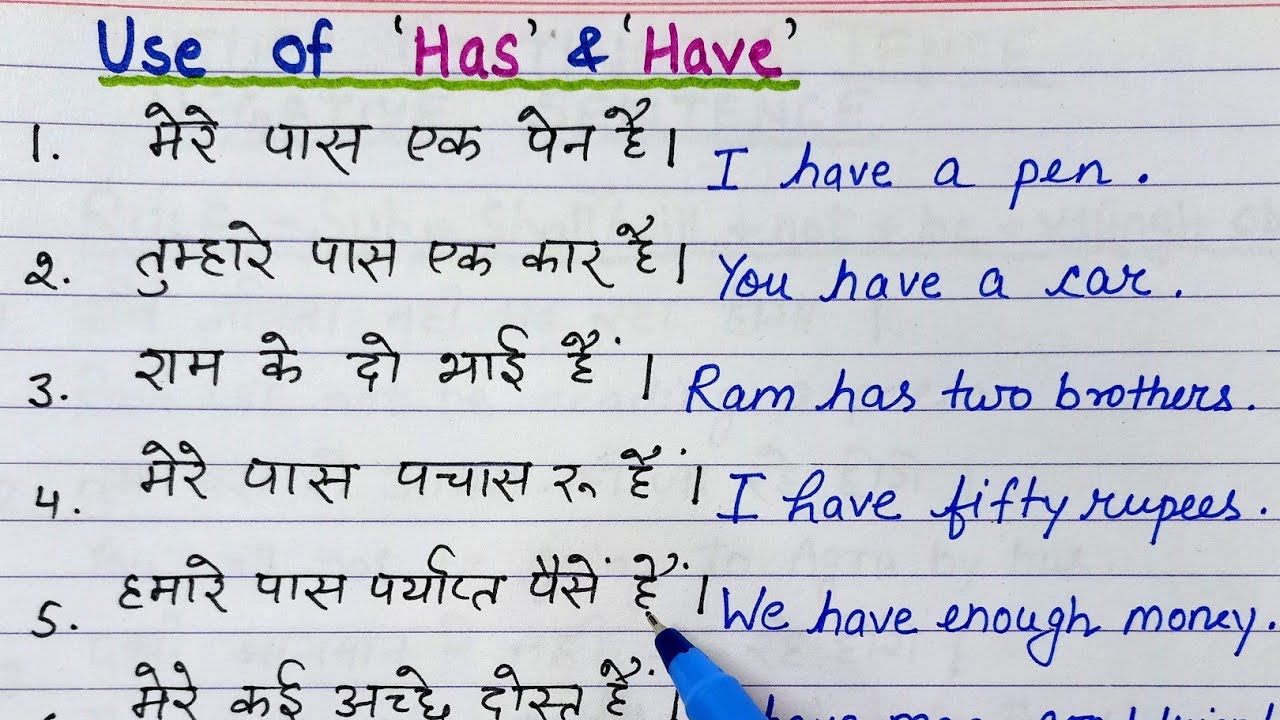 Use of 'Has' & 'Have'
1. मेरे पास एक पेन है। I have a pen.
2. तुम्हारे पास एक कार है। You have a car.
3. राम के दो भाई हैं। Ram has two brothers.
4. मेरे पास पचास रू हैं। I have fifty rupees.
5. हमारे पास पर्याप्त पैसें हैं। We have enough money.
मेरे कई अच्छे दोस्त हैं।